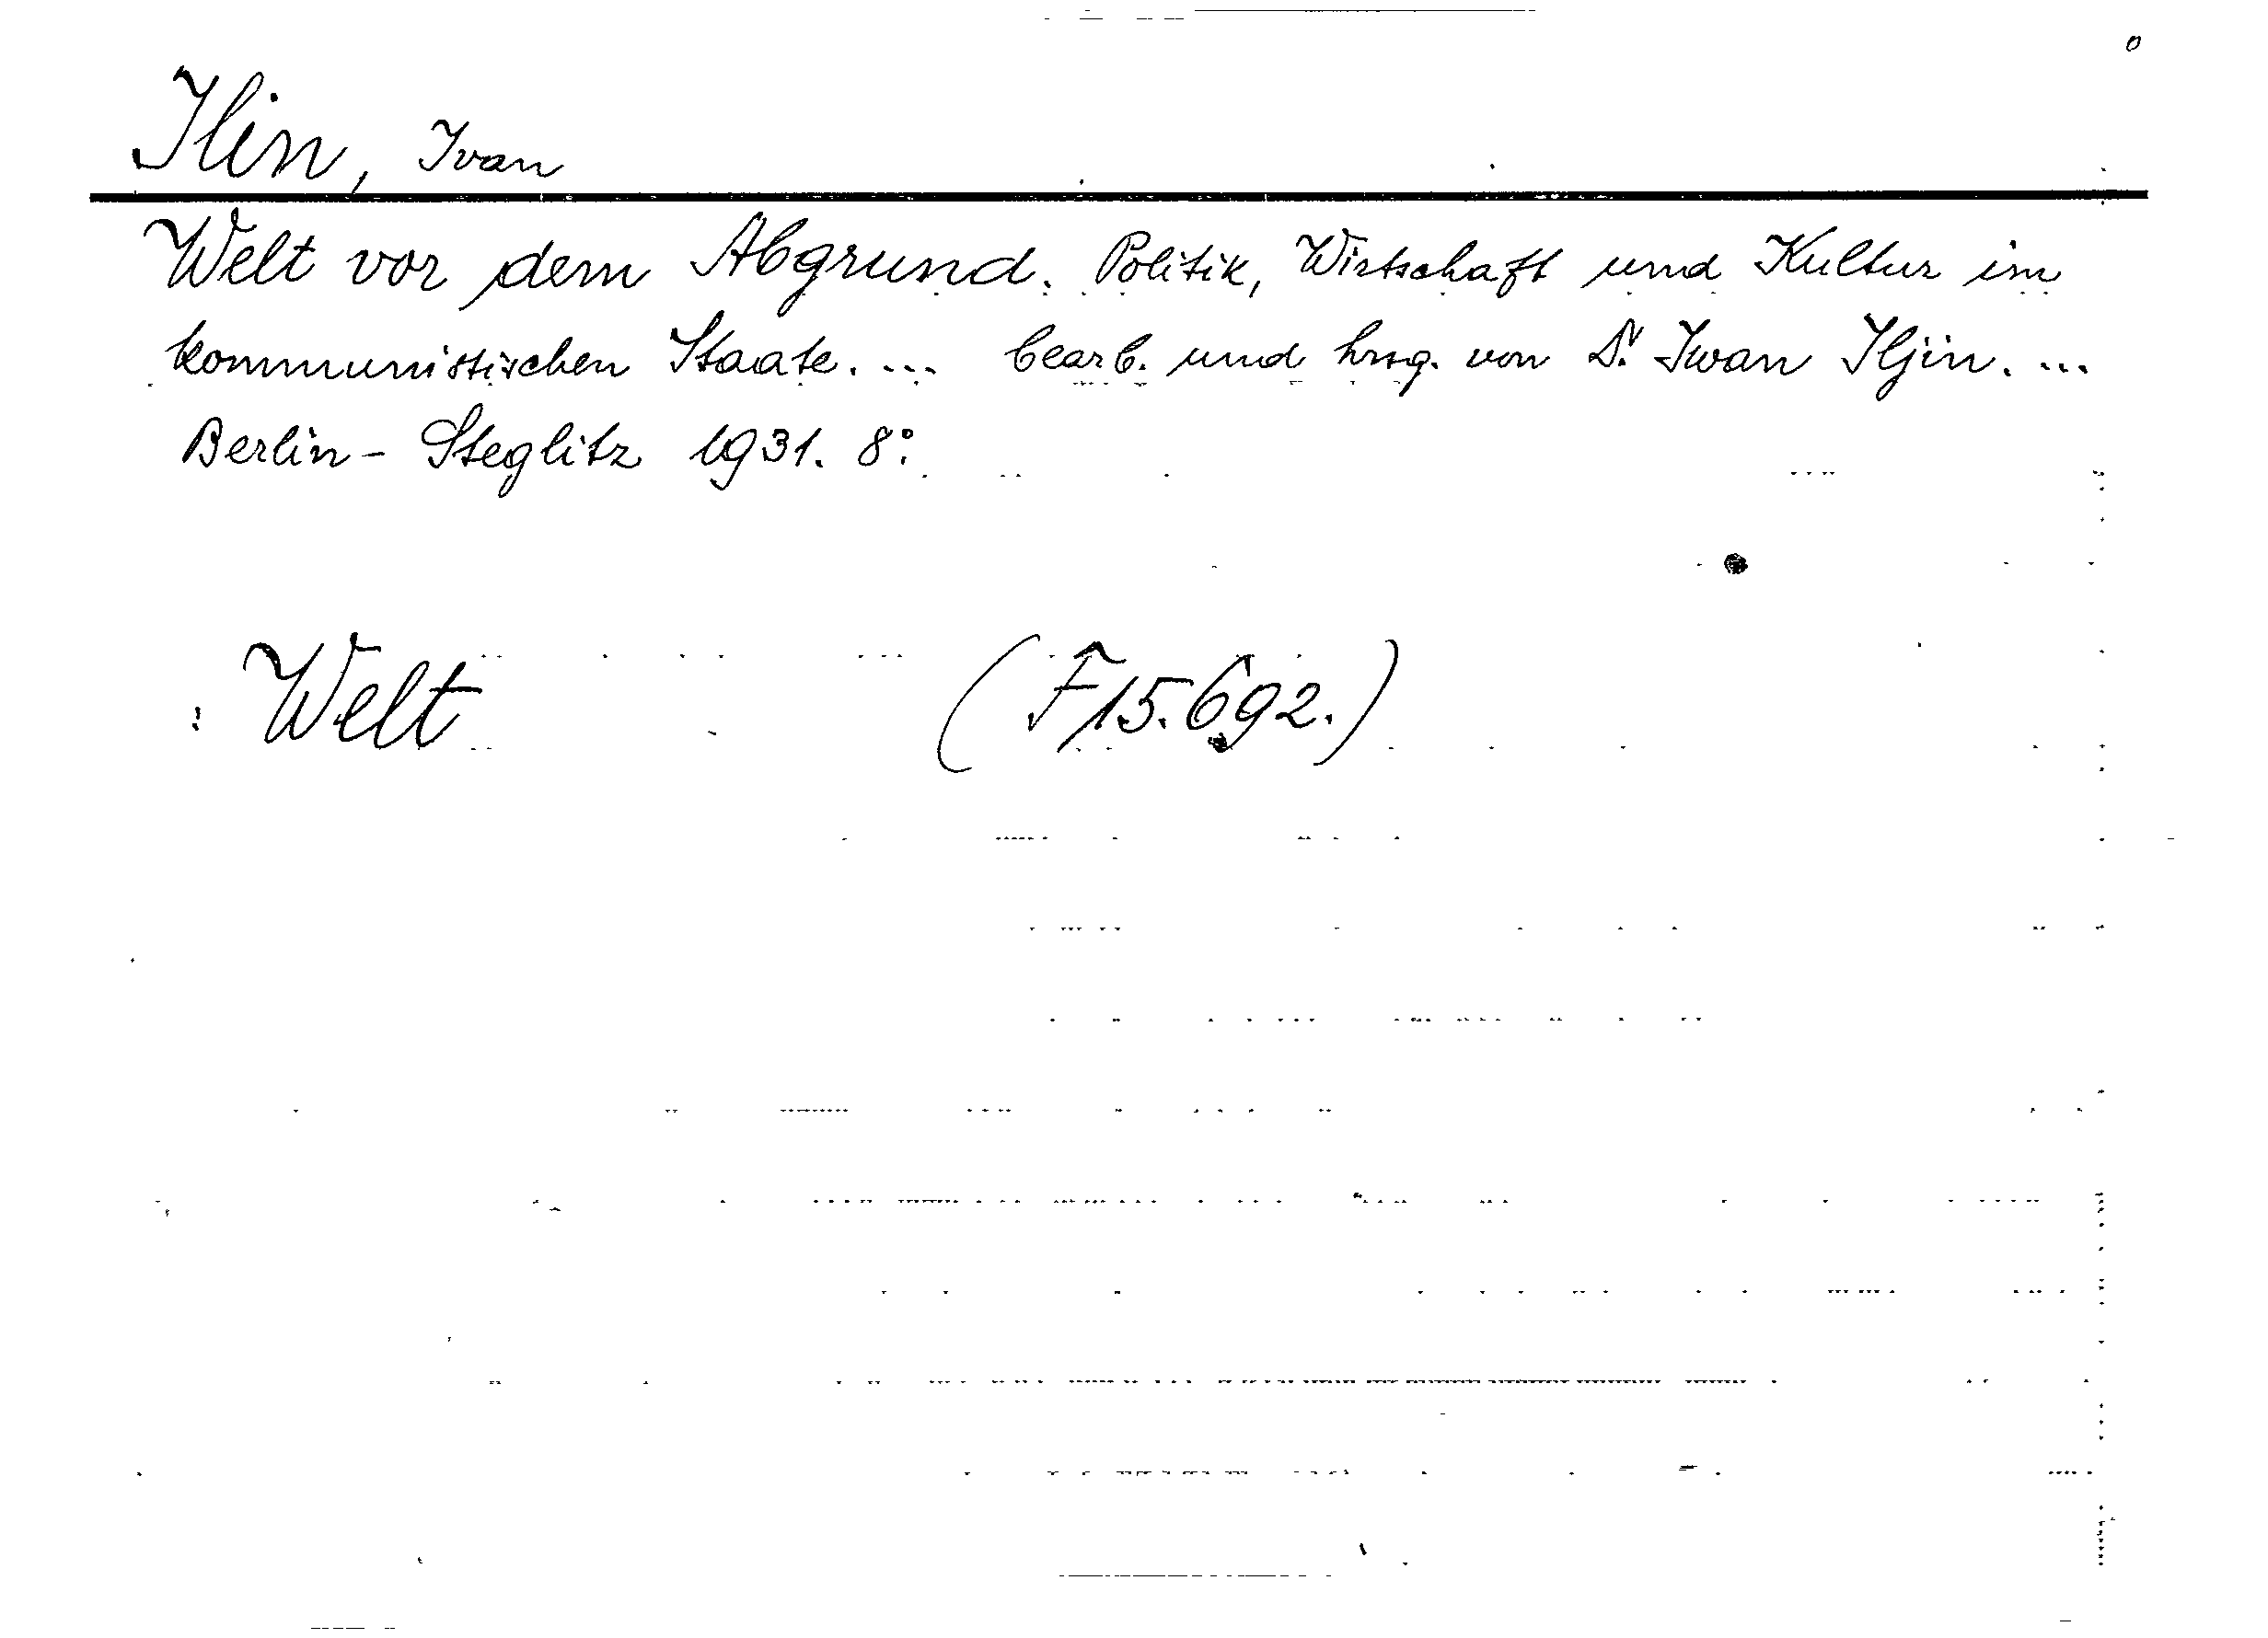 Ilin, Ivan
Welt vor dem Abgrund. Politik, Wirtschaft und Kultur im
kommunistischen Staate. ... bearb. und hrsg. von Dr. Iwan Iljin. ...
Berlin - Steglitz 1931. 8°.
: Welt (F 15.692.)